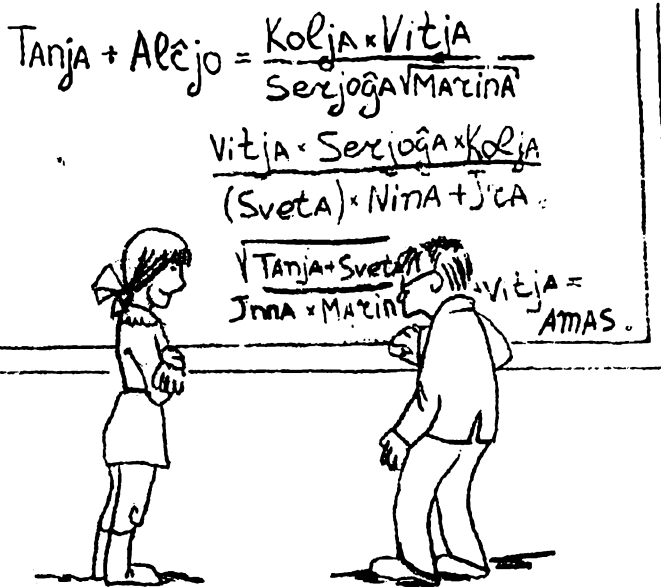 Tanja + Alĉjo = Kolja × Vitja
Serjoĝa √Marina
Vitja × Serjoĝa × Kolja
(Sveta) × Nina + Jra
√Tanja + Sveta
Jnna × Marin + Vitja =
AMAS.